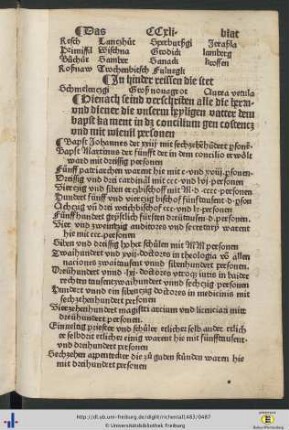 Das CCxli- blat
Resch Lanczhůt Jerassla
Wischna Grodick lamberg
Bůchůt Samber Sanack kroßen
Roßnaw Fulnegk
In hinder reissen die stet
Groß nouagrot
Hienach seind verschriben alle die herrn
vnd diener die vnserm heyligen vatter dem
bapst ka ment in dz concilium gen costencz
vnd mit wieuil personen
Bapst Johannes der xxiij mit sechßhundert person
Bapst Martinus der fünfft der in dem concilio erwölt
ward mit dreissig personen
Fünff patriarchen warent hie mit c- vnd xviij- personen
Dreissig vnd drei cardinäl mit ccc- vnd lvj- personen
Vierczig vnd siben erczbischoff mit M- d- cccc- personen
Hundert fünff vnd vierczig bischof fünfftausent- d- person
Achczig vnd drei weichbischof ccc- vnd lx- personen
Fünff hundert geystlich fürsten dreütausen- d- personen
Vier vnd zweinczig auditores vnd secretary warent
hie mit ccc- personen
Siben vnd dreissig hoher schůlen mit MM personen
Zwaihundert vnd xvij- doctores in theologia vō allen
nacionibus zwaitausent vnnd sibenhundert personen
Dreühundert vnnd lxj- doctores vtroq; iuris in baide
rechten tausentzwaihundert vnnd sechczig personen
Hundert vnnd ein sibenczig doctores in medicinis mit
sechczehenhundert personen
Vierzehenhundert magistri artium vnd licenciati mit
dreühundert personen
Einueltig priester vnd schüler etlicher selb ander etlich
er selbdrit etlicher einig warent hie mit fünfftausent
vnd dreihundert personen
Sechzehen appentecker die zů gaden stůnden waren hie
mit dreihundert personen
http://dl.ub.uni-freiburg.de/diglit/richental1483/0487
© Universitätsbibliothek Freiburg